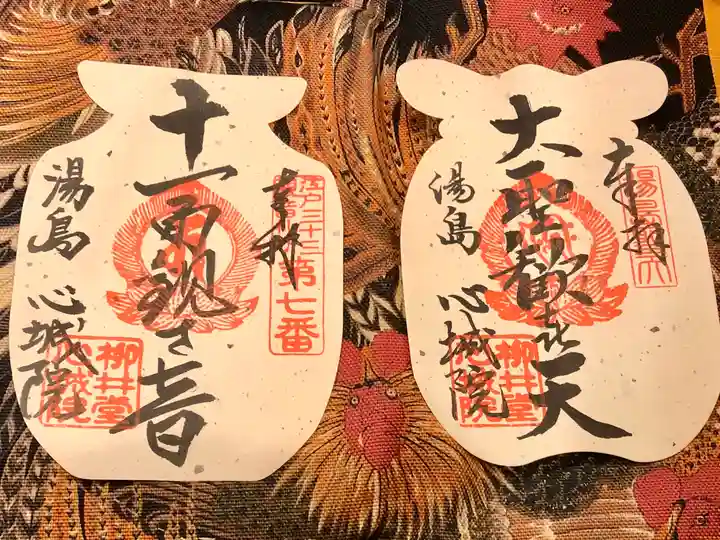 奉拝
江戸三十三
第七番
十一面観世音
湯島 心城院
柳井堂
心城院
奉拝
湯島聖天
大聖歓喜天
湯島 心城院
柳井堂
心城院